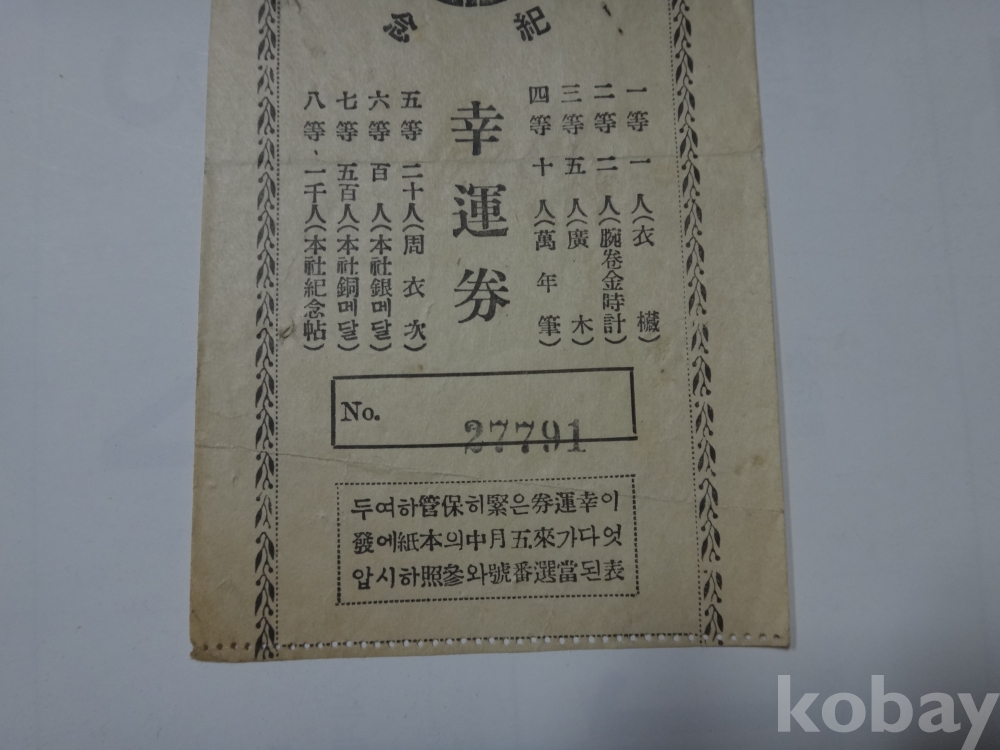 紀念
一等 一人(衣欌)
二等 二人(腕卷金時計)
三等 五人(廣木)
四等 十人(萬年筆)
幸運券
五等 二十人(周衣次)
六等 百人(本社銀메달)
七等 五百人(本社銅메달)
八等 一千人(本社紀念帖)
No. 27791
이幸運券은緊히保管하여두
엇다가來五月中의本紙에發
表된當選番號와參照하시압
kobay